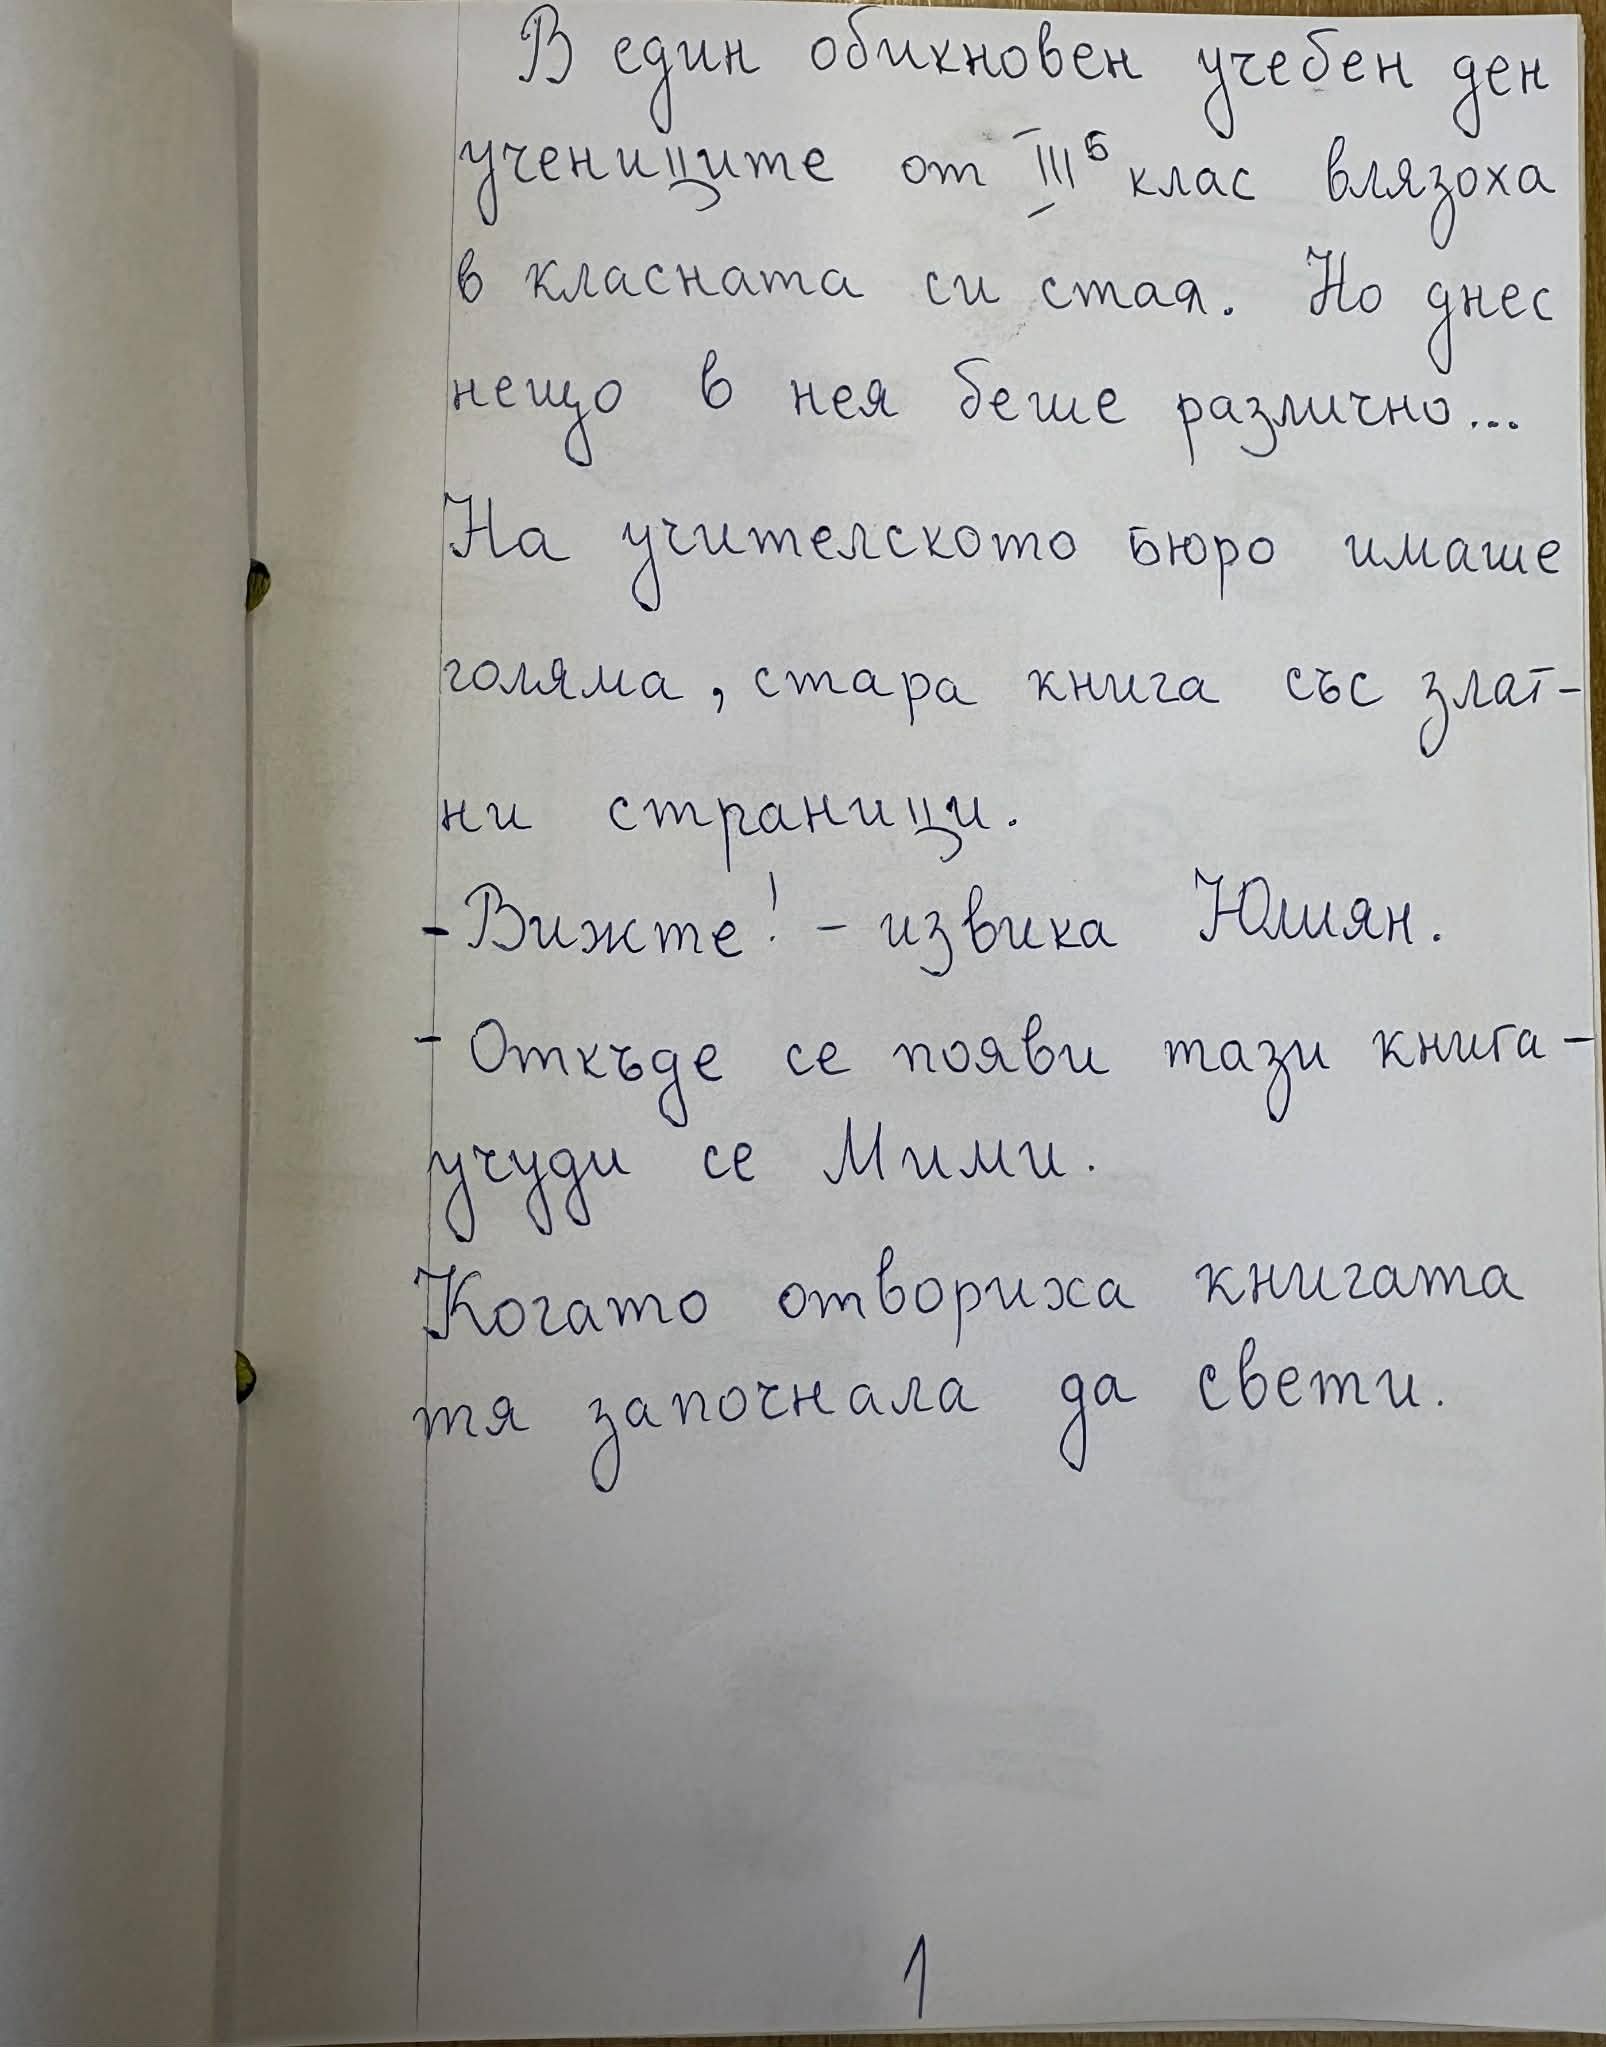 В един обикновен учебен ден
учениците от III б клас влязоха
в класната си стая. Но днес
нещо в нея беше различно...
На учителското бюро имаше
голяма, стара книга със злат-
ни страници.
- Вижте! - извика Юлиян.
- Откъде се появи тази книга -
учуди се Мими.
Когато отвориха книгата
тя започнала да свети.
1